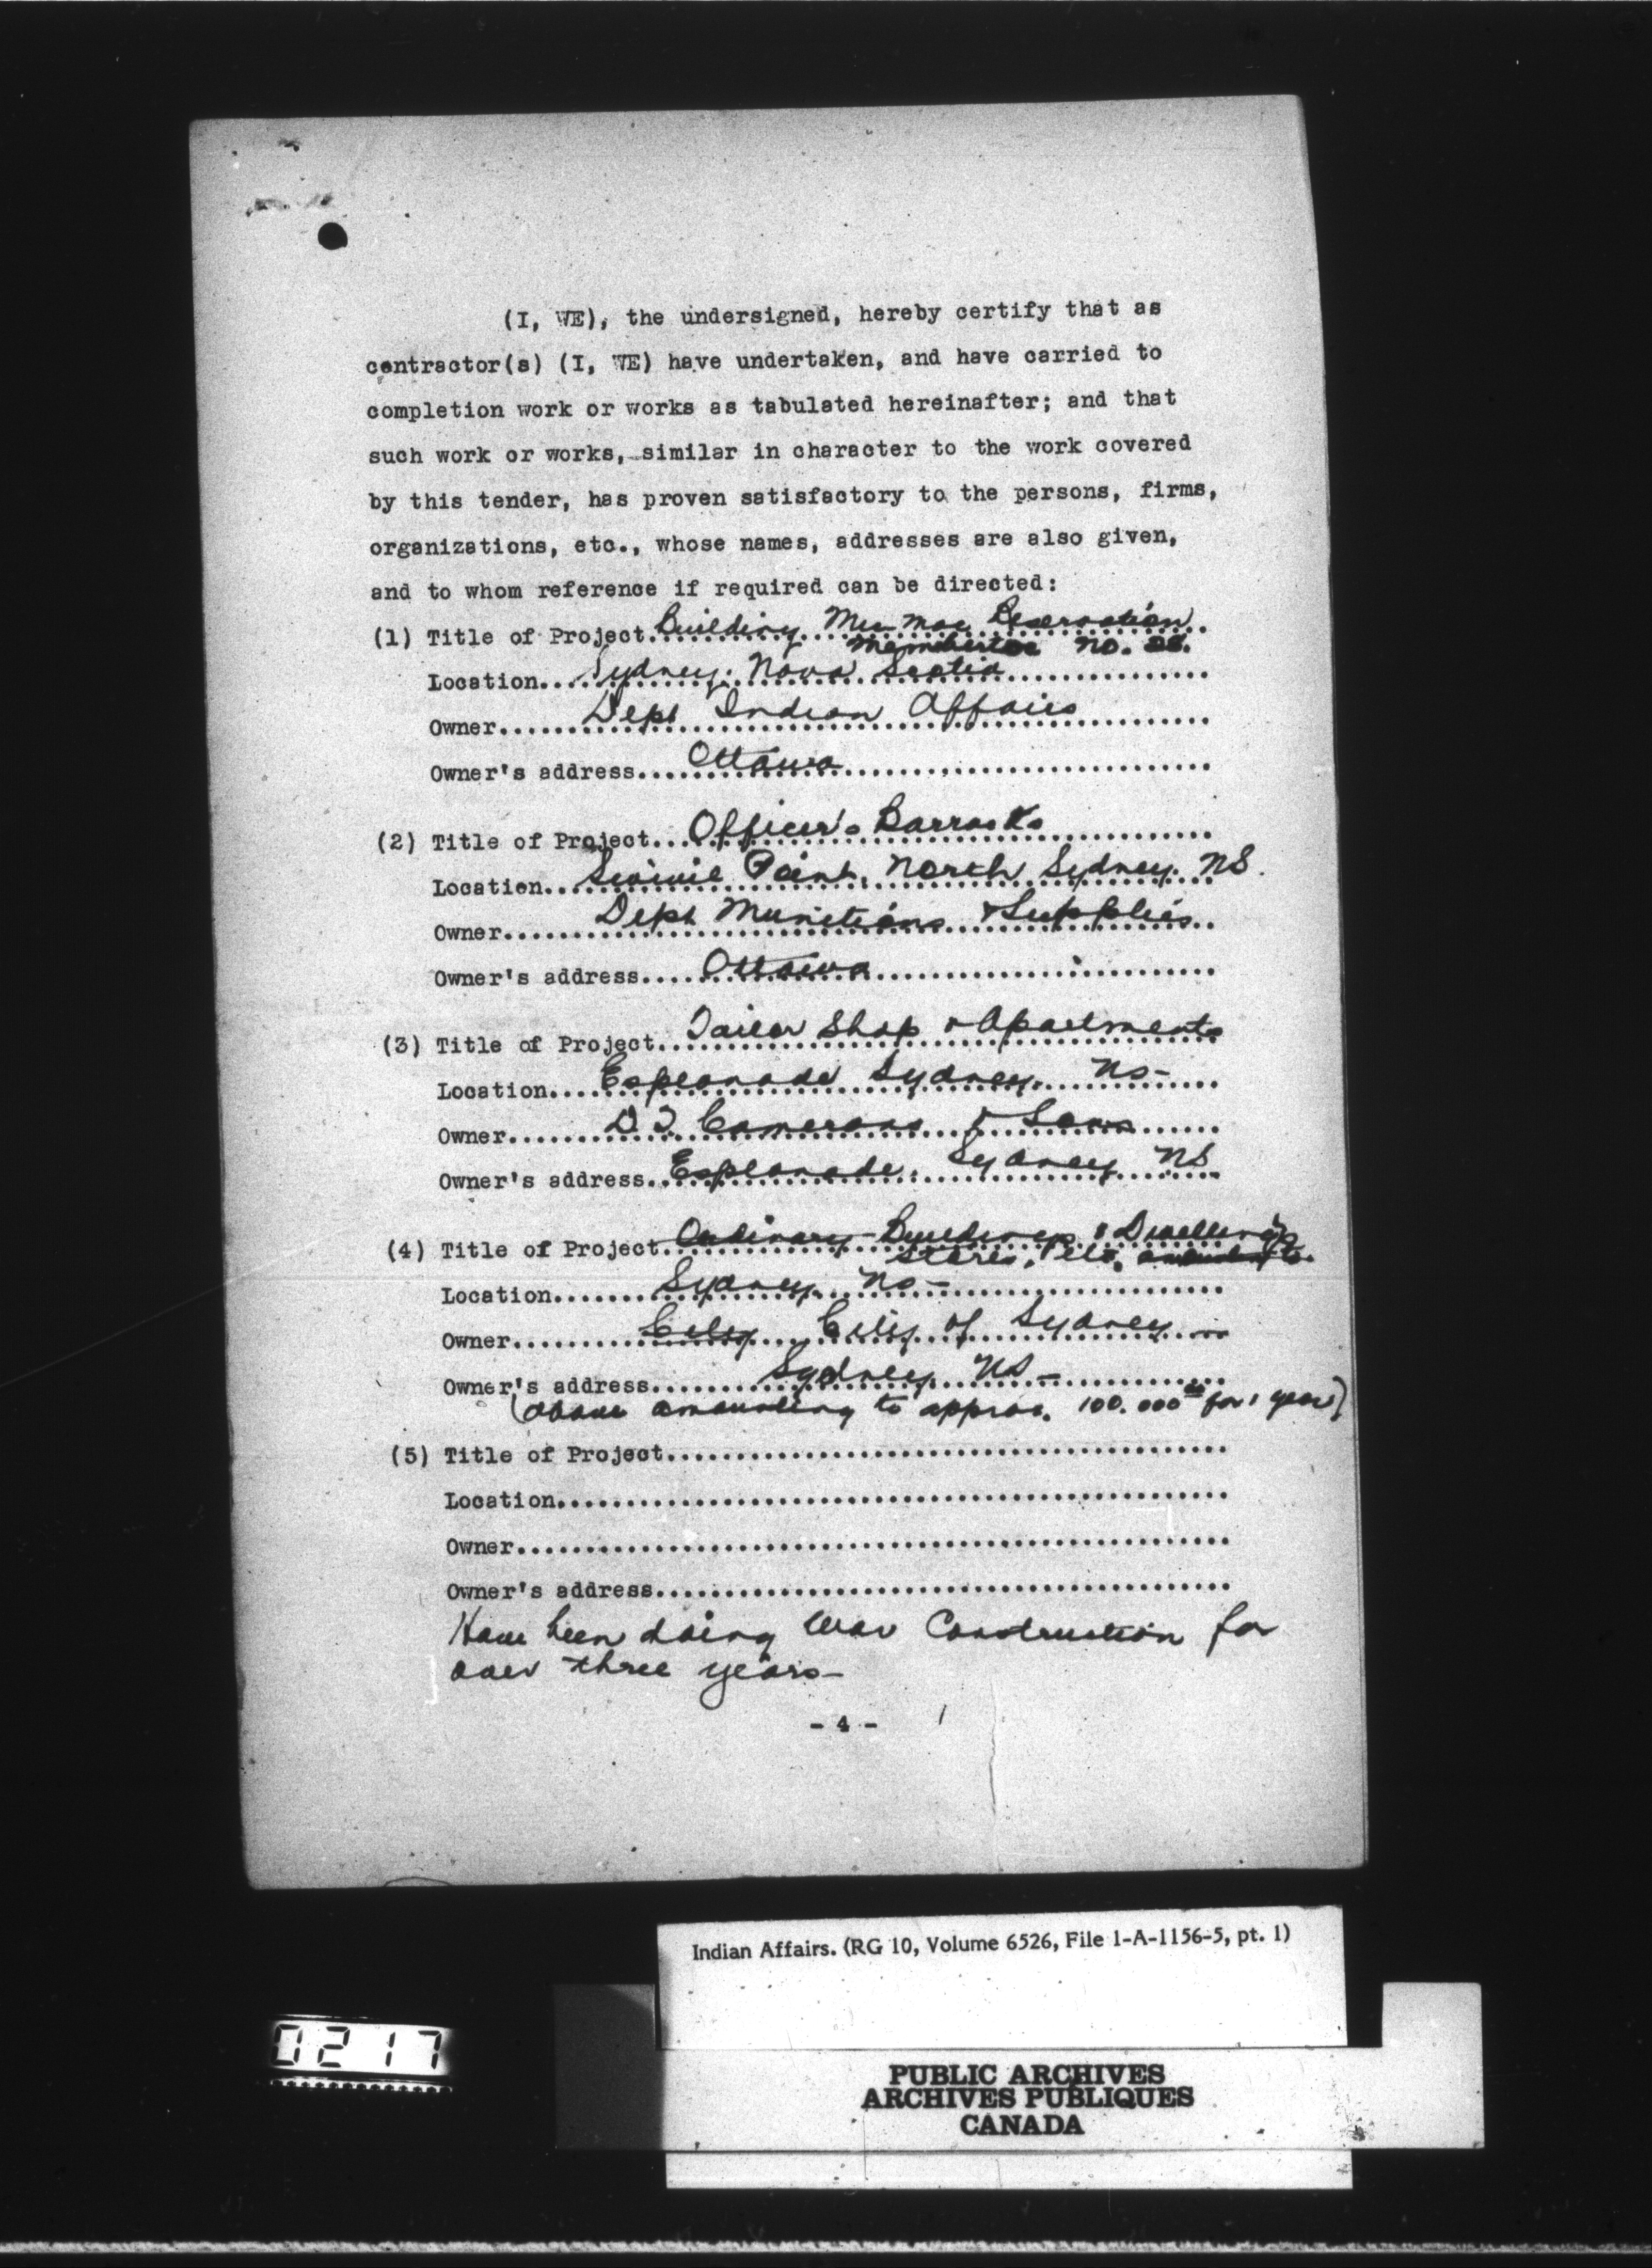 (I, WE), the undersigned, hereby certify that as
contractor(s) (I, WE) have undertaken, and have carried to
completion work or works as tabulated hereinafter; and that
such work or works, similar in character to the work covered
by this tender, has proven satisfactory to the persons, firms,
organizations, etc., whose names, addresses are also given,
and to whom reference if required can be directed:
(1) Title of Project Building Mic mac Reservation
Membertou No. 28.
Location Sydney. Nova Scotia
Owner Dept Indian Affairs
Owner's address Ottawa
(2) Title of Project Officers Barracks
Location Point, North Sydney. NS.
Owner Dept Munitions & Supplies
Owner's address Ottawa
(3) Title of Project Tailor Shop & Apartments
Location Esplanade Sydney. NS-
Owner Camerons & Sons
Owner's address Esplanade. Sydney NS
(4) Title of Project Ordinary Buildings, Dwellings
Stores, etc.
Location Sydney NS-
Owner City City of Sydney
Owner's address Sydney. NS-
(above amounting to approx. 100.000 00 for 1 year)
(5) Title of Project
Location
Owner
Owner's address
Have been doing War Construction for
over three years-
- 4 -
Indian Affairs. (RG 10, Volume 6526, File 1-A-1156-5, pt. 1)
0217
PUBLIC ARCHIVES
ARCHIVES PUBLIQUES
CANADA